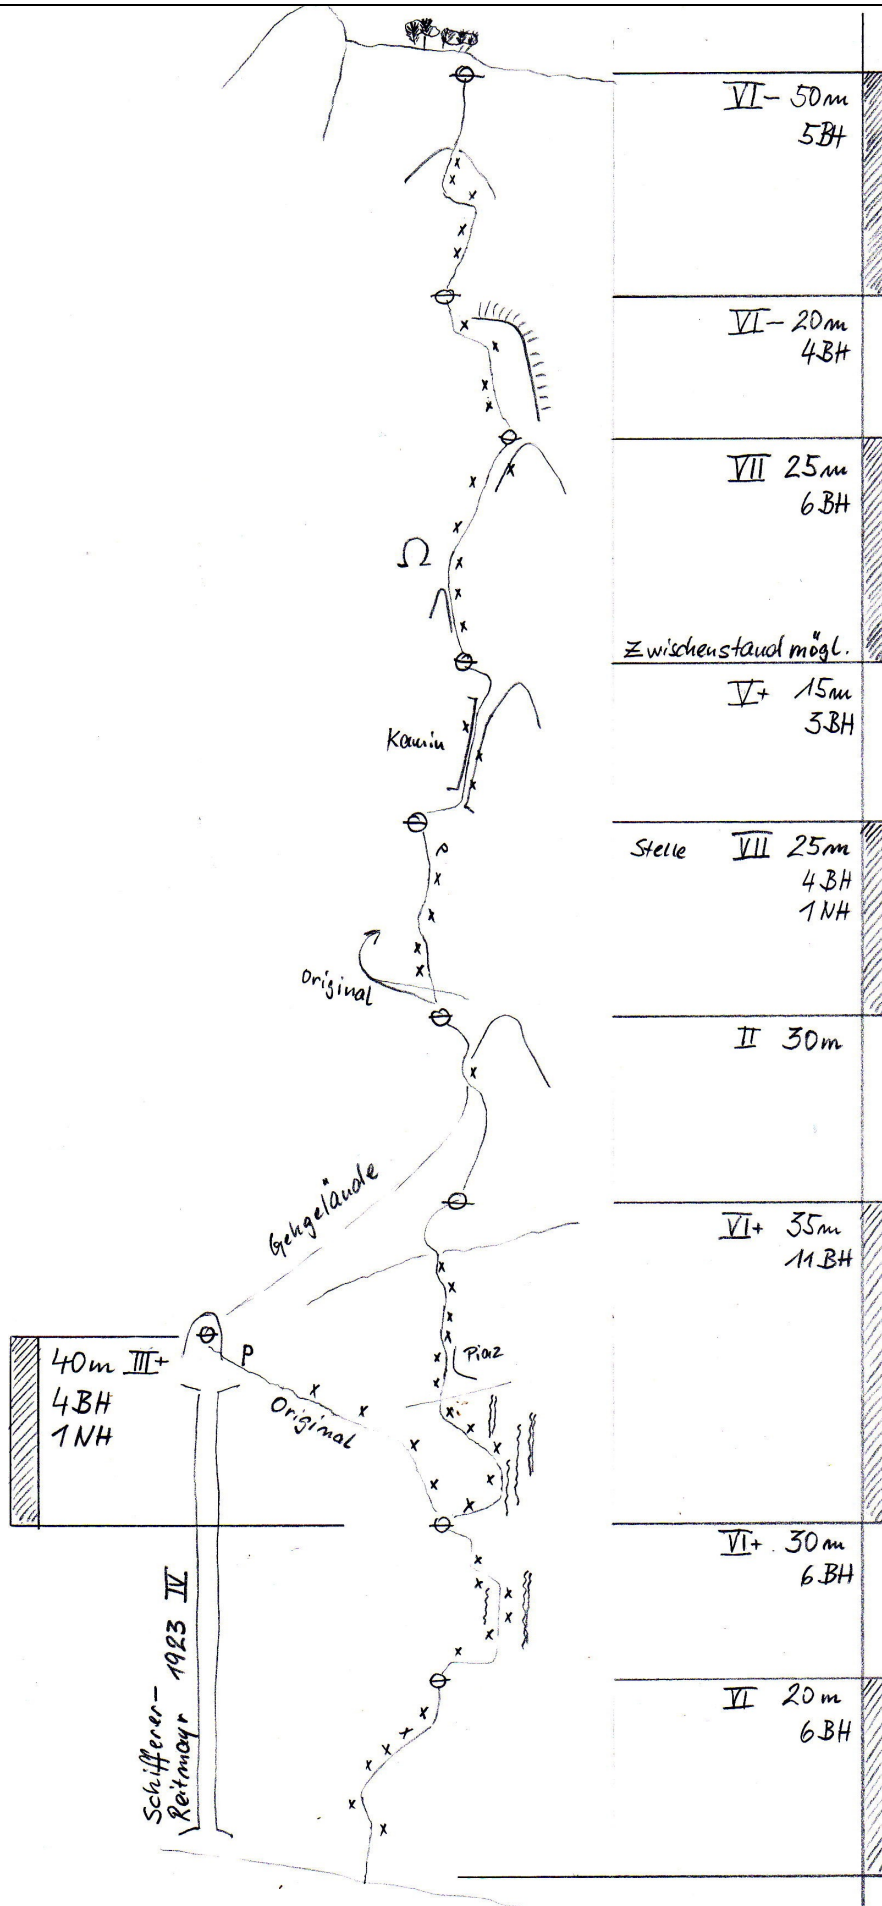 VI- 50m
5BH
VI- 20m
4BH
VII 25m
6BH
Ω
Zwischenstand mögl.
V+ 15m
3BH
Kamin
Stelle VII 25m
4BH
1NH
Original
II 30m
Gehgelände
VI+ 35m
11BH
Piaz
P
40m III+
4BH
1NH
Original
VI+ 30m
6BH
Schifferer-
Reitmayr 1923 IV
VI 20m
6BH